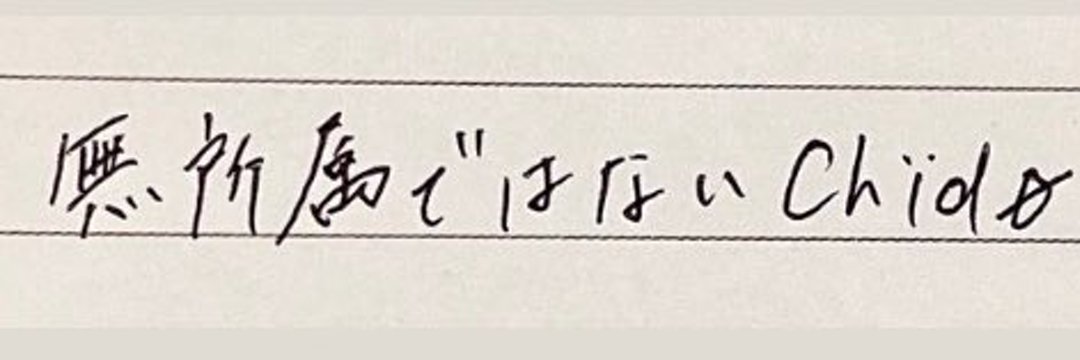 無所属ではないChïdø